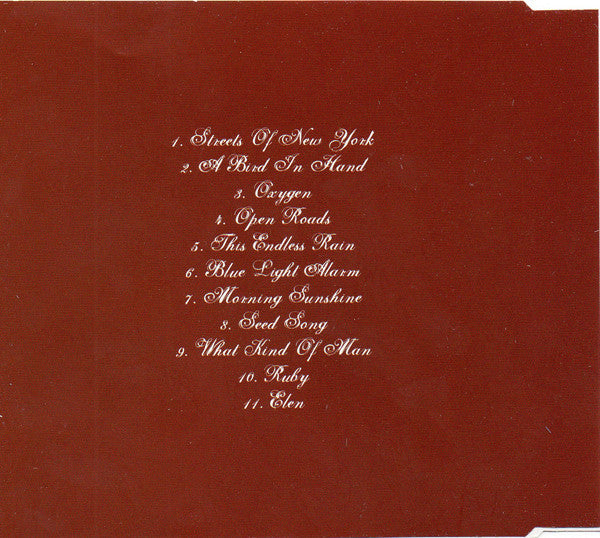 1. Streets Of New York
2. A Bird In Hand
3. Oxygen
4. Open Roads
5. This Endless Rain
6. Blue Light Alarm
7. Morning Sunshine
8. Seed Song
9. What Kind Of Man
10. Ruby
11. Elen